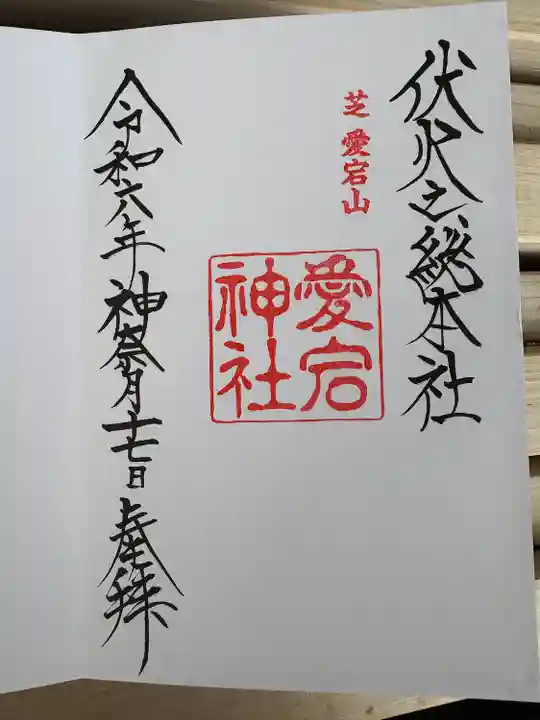 伏火之総本社
芝 愛宕山
愛宕
神社
令和六年神奈月十七日奉拝